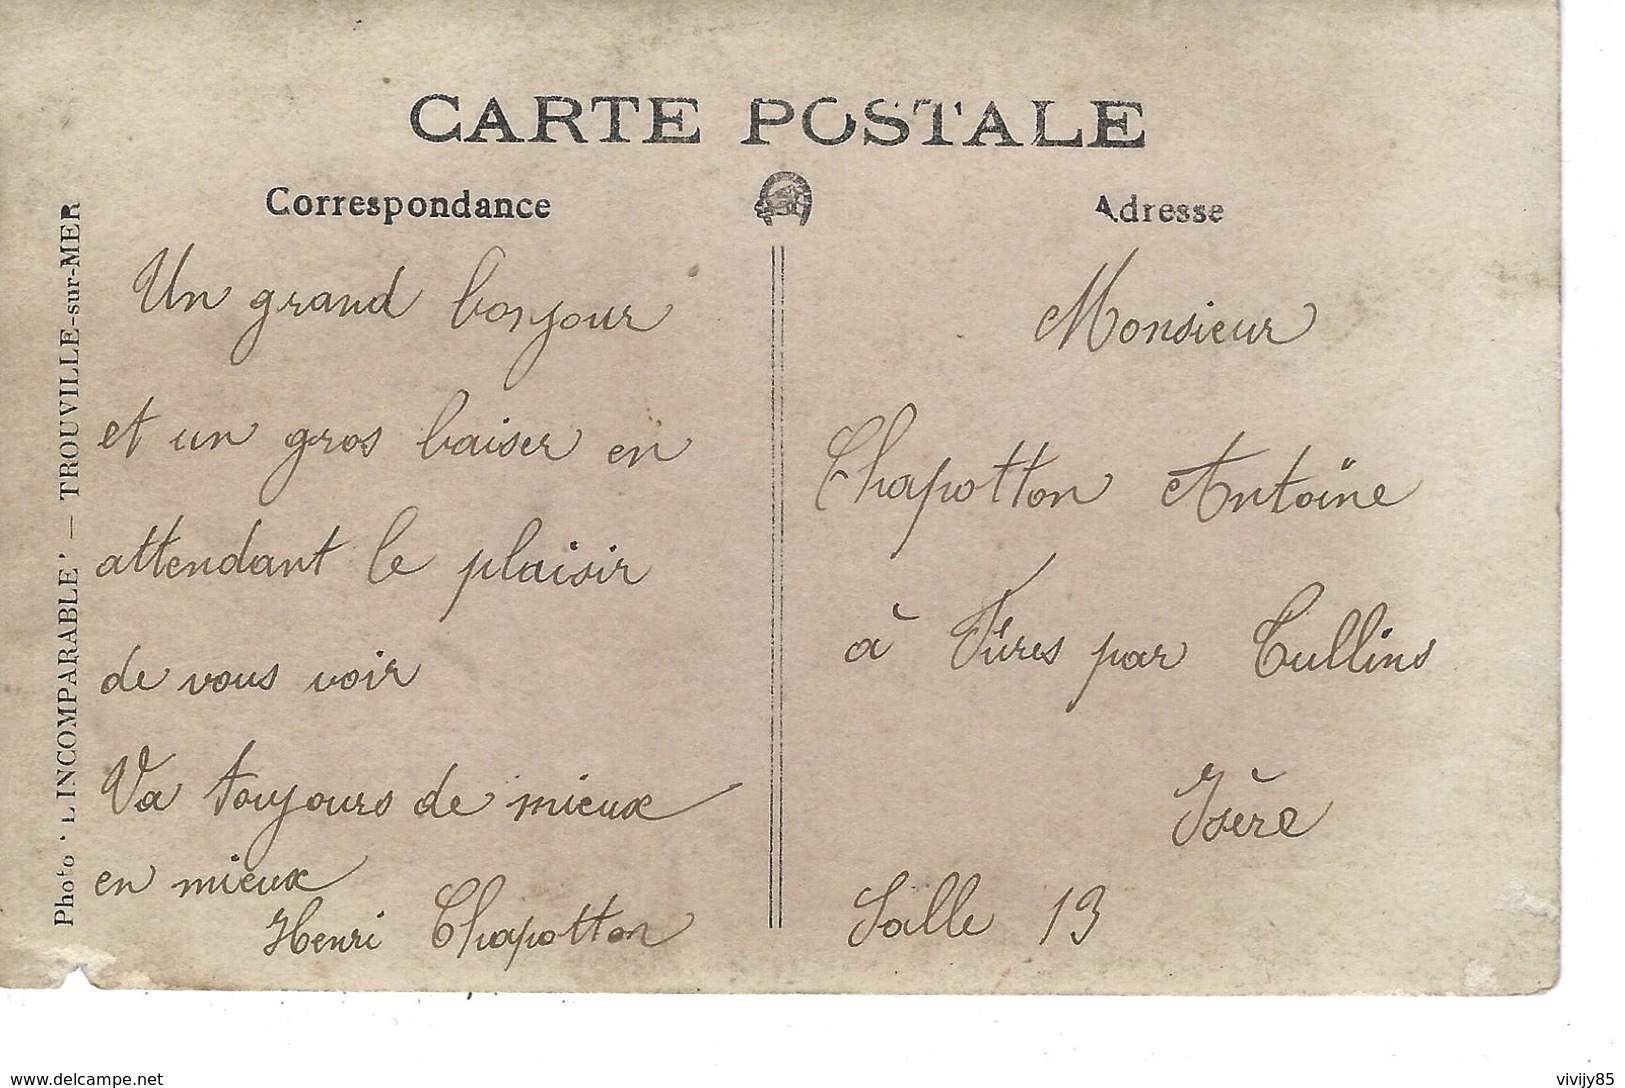 CARTE POSTALE
Correspondance
Adresse
Un grand bonjour
et un gros baiser en
attendant le plaisir
de vous voir
Va toujours de mieux
en mieux
Henri Chapotton
Monsieur
Chapotton Antoine
à Fures par Tullins
Isère
Salle 13
Photo ' L'INCOMPARABLE ' — TROUVILLE-sur-MER
www.delcampe.net
vivijy85